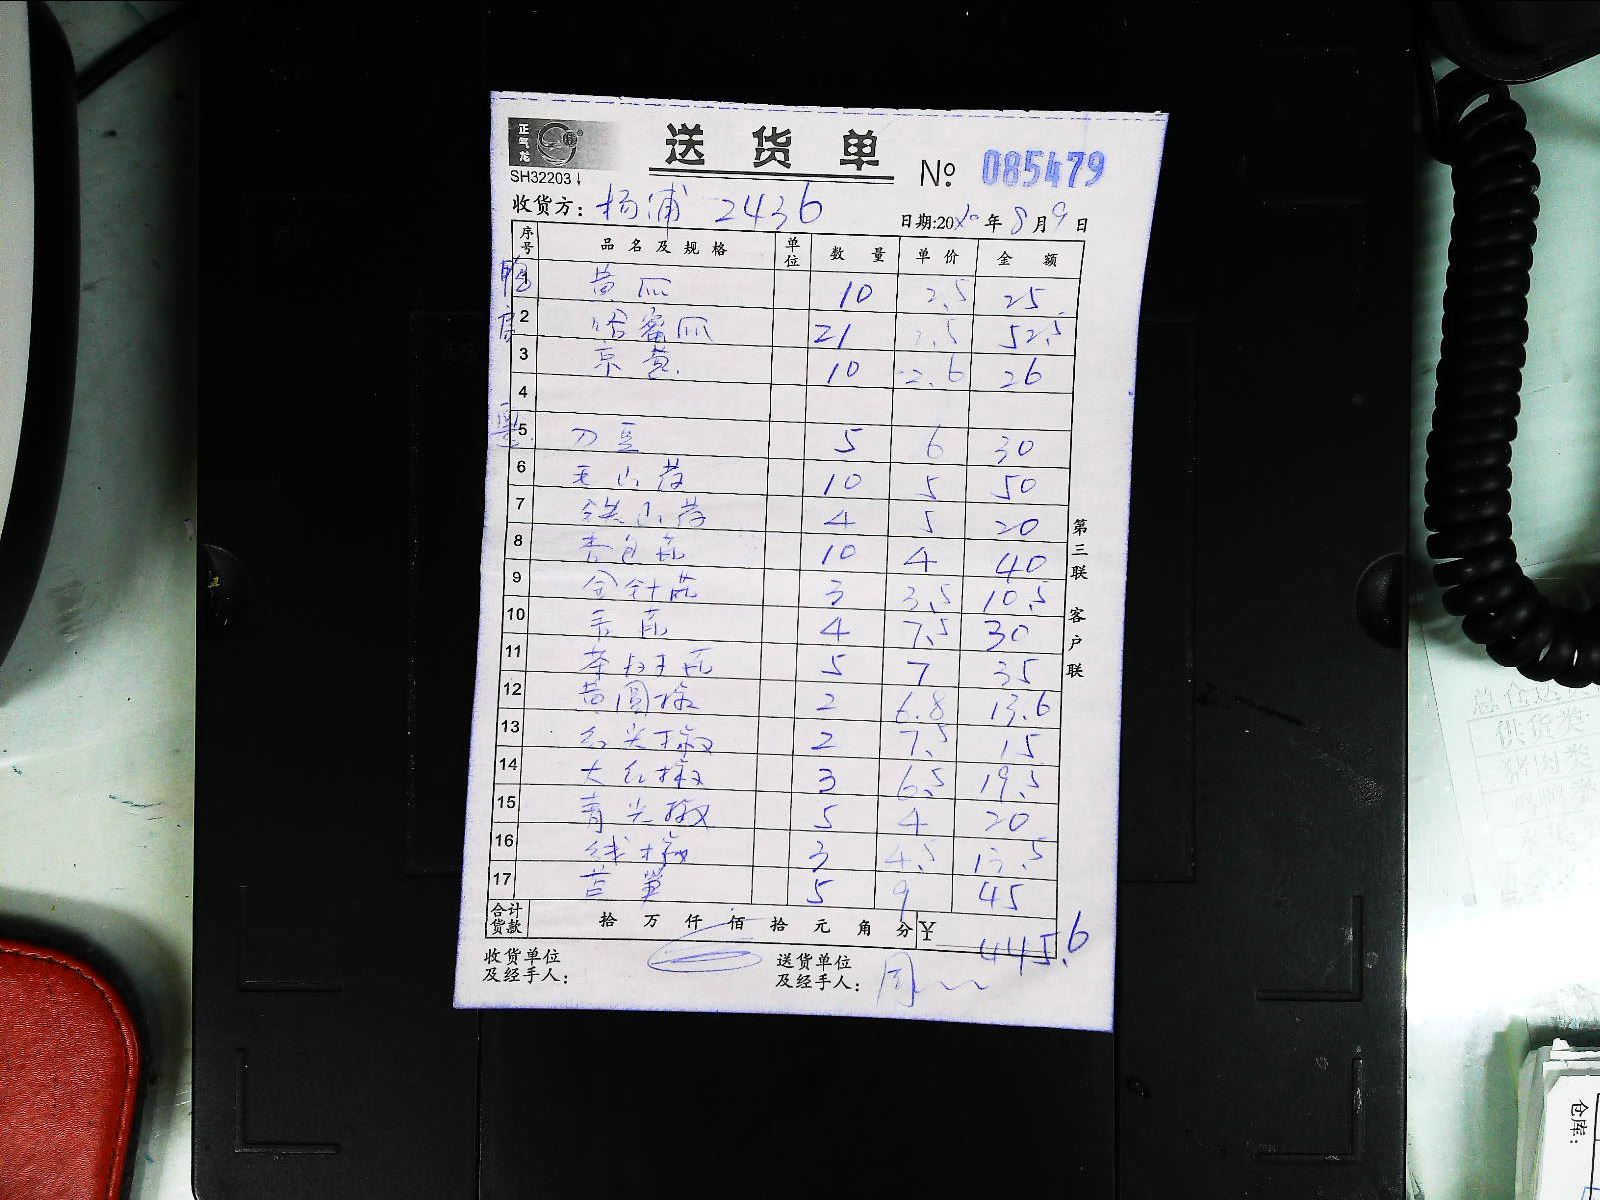 正气龙
SH32203
送货单
№ 085479
收货方: 杨浦 2436
日期:2020年8月9日
序号 品名及规格 单位 数量 单价 金额
1 黄瓜 10 2.5 25
2 哈蜜瓜 21 2.5 52.5
3 京黄 10 2.6 26
4
5 刀豆 5 6 30
6 毛山药 10 5 50
7 铁山药 4 5 20
8 杏包菇 10 4 40
9 金针菇 3 3.5 10.5
10 香菇 4 7.5 30
11 茶树菇 5 7 35
12 黄圆椒 2 6.8 13.6
13 红尖椒 2 7.5 15
14 大红椒 3 6.5 19.5
15 青尖椒 5 4 20
16 线椒 3 4.5 13.5
17 苔笋 5 9 45
合计货款 拾 万 仟 佰 拾 元 角 分 ¥ 445.6
收货单位及经手人:
送货单位及经手人: 周
第三联 客户联
供货类
猪肉类
仓库: